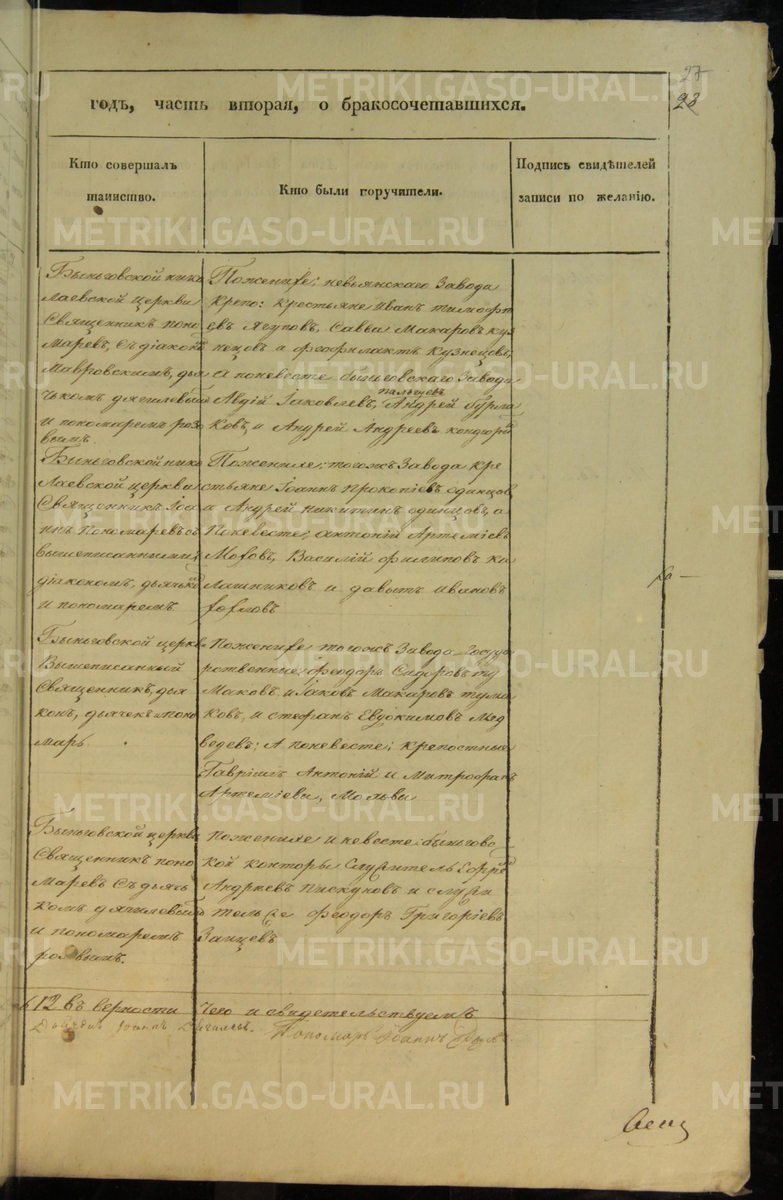 27
28
годъ, часть вторая, о бракосочетавшихся.
Кто совершалъ
таинство.
Кто были поручители.
Подпись свидѣтелей
записи по желанію.
Быньговской нико
лаевской церкви
Священникъ поно
маревъ, съ діакономъ
Мавровскимъ, дья
чькомъ
и пономаремъ роз
вымъ
Пожениhе: невьянскаго Завода
крепо: крестьяне Иванъ тимофѣ
евъ Ягуповъ, Савва Макаровъ куз
нецовъ и феофилактъ Кузнецовъ,
А поневесте быньговскаго Завода
пальцевъ
Авдій Іаковлевъ, Андрей бурла
ковъ, и Андрей Андреевъ
Быньговской нико
лаевской церкви
Священникъ Іоа
ннъ Пономаревъ съ
вышеписанными
діакономъ, дьячькомъ
и пономаремъ
Пожениле: тогожъ Завода кре
стьяне Іоаннъ прокопіевъ одинцовъ
и Андрей никитинъ одинцовъ, а
Поневесте; антоній Артеміевъ
Василій филиповъ ка
лашниковъ и давыдъ ивановъ
Быньговской церкви
Вышеписанный
Священникъ, дья
конъ, дьячекъ и поно
марь.
Пожениhе тогожъ Завода Госуда
рственные; феодоръ Сидоровъ ту
маковъ и Іаковъ Макаровъ тума
ковъ, и стефанъ Евдокимовъ Мед
ведевъ; А поневесте; крепостные
Гавріилъ Антоній и Митрофанъ
Артеміевы,
Быньговской церкви
Священникъ поно
маревъ Съ дьячь
комъ
и пономаремъ
розвымъ.
пожениле и невесте: быньгов
кой конторы Служитель Ефремъ
Андреевъ Пискуновъ и служи
тель же феодоръ Григоріевъ
Заицевъ
12 въ верности чего и свидетельствуемъ
Іоаннъ
Пономарь Іоаннъ
METRIKI.GASO-URAL.RU